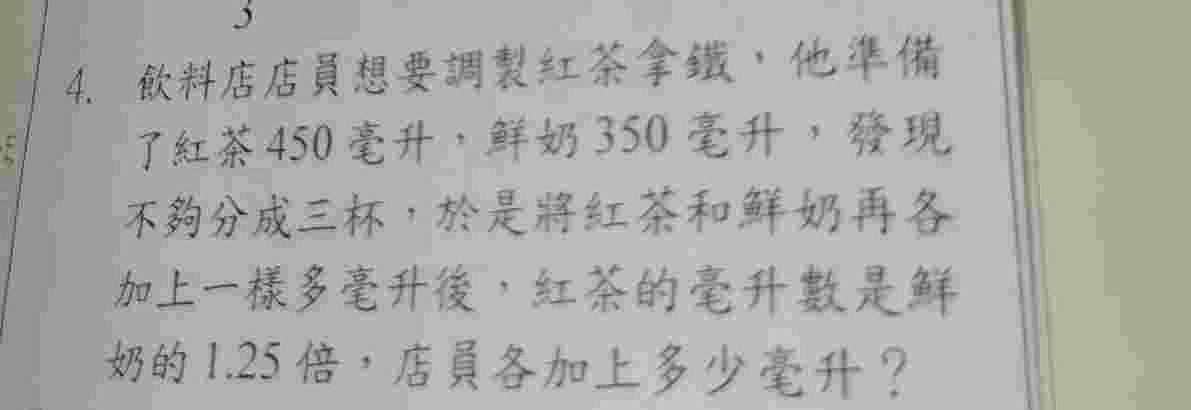 3
4. 飲料店店員想要調製紅茶拿鐵，他準備
了紅茶 450 毫升，鮮奶 350 毫升，發現
不夠分成三杯，於是將紅茶和鮮奶再各
加上一樣多毫升後，紅茶的毫升數是鮮
奶的 1.25 倍，店員各加上多少毫升？